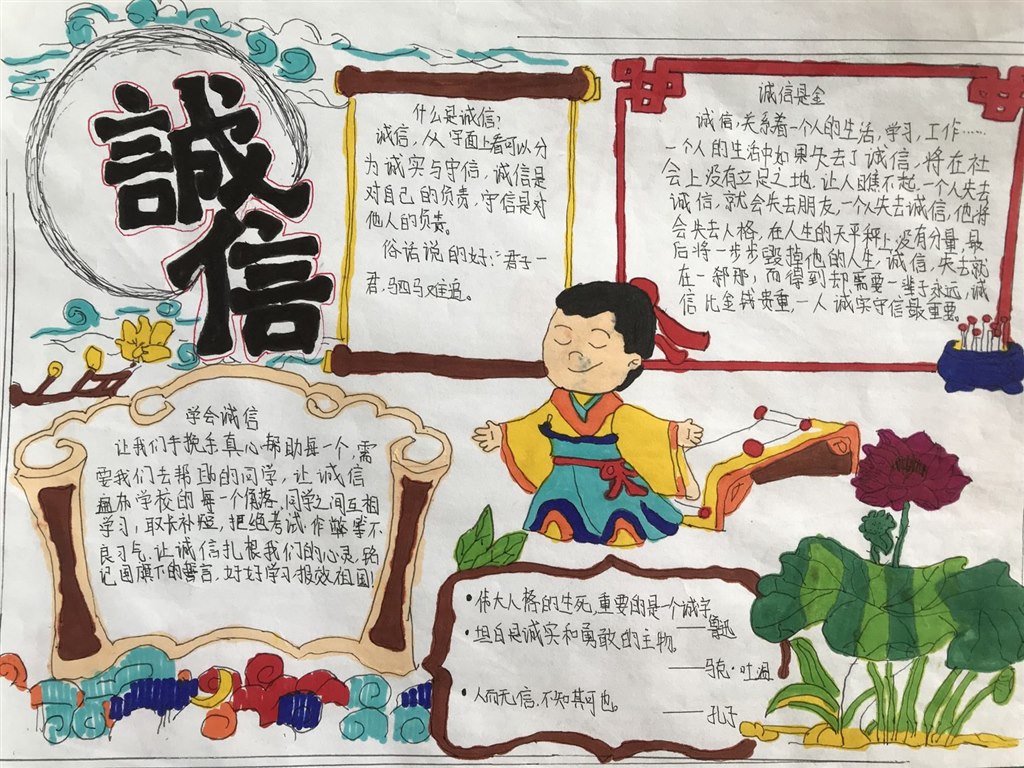 誠
信
什么是诚信?
诚信,从字面上看可以分
为诚实与守信,诚信是
对自己的负责,守信是对
他人的负责。
俗话说的好:“君子一
君,驷马难追。
诚信是金
诚信,关系着一个人的生活,学习,工作……
一个人的生活中如果失去了诚信,将在社
会上没有立足之地,让人瞧不起,一个人失去
诚信,就会失去朋友,一个人失去诚信,他将
会失去人格,在人生的天平秤上没有分量,最
后将一步步毁掉他的人生,诚信,失去就
在一刹那,而得到却需要一辈子永远,诚
信比金钱贵重,一人诚实守信最重要。
学会诚信
让我们手挽手真心帮助每一个,需
要我们去帮助的同学,让诚信
遍布学校的每一个角落,同学之间互相
学习,取长补短,拒绝考试作弊等不
良习气,让诚信扎根我们的心灵,铭
记国旗下的誓言,好好学习报效祖国!
•伟大人格的生死,重要的是一个诚字
——鲁迅
•坦白是诚实和勇敢的主物。
——马克·吐温
•人而无信,不知其可也。
——孔子